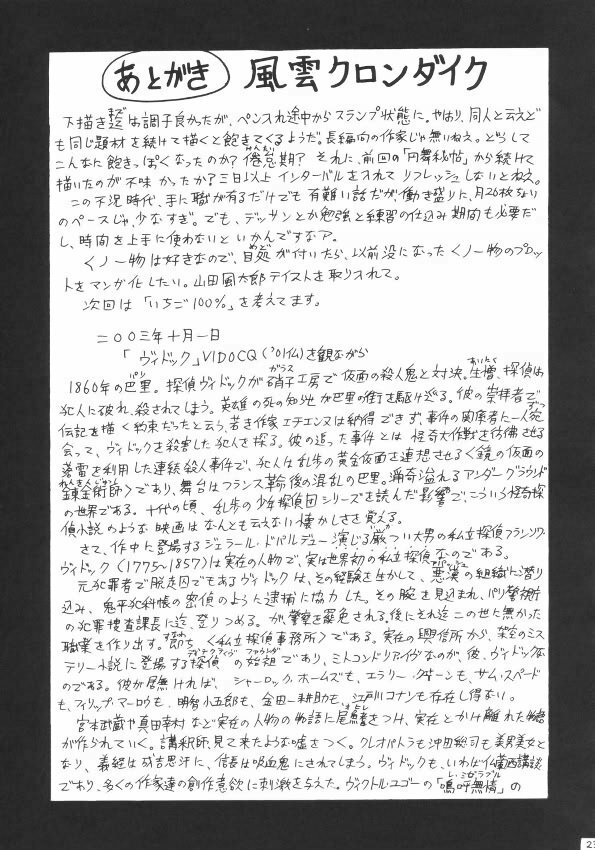 あとがき 風雲クロンダイク
下描き迄は調子良かったが、ペン入れ途中からスランプ状態に。やはり、同人と云えど
も同じ題材を続けて描くと飽きてくるようだ。長編向の作家じゃ無いねえ。どうして
こんなに飽きっぽくなったのか?倦怠期?それに、前回の「円舞秘帖」から続けて
描いたのが不味かったか?三日以上インターバルを入れてリフレッシュしないとねえ。
この不況時代、手に職が有るだけでも有難い話だが、働き盛りに、月26枚ちょり
のペースじゃ、少なすぎ。でも、デッサンとか勉強と練習の仕込み期間も必要だ
し、時間を上手に使わないといかんですなァ。
くノ一物は好きなので、目処が付いたら、以前没になったくノ一物のプロッ
トをマンガ化したい。山田風太郎テイストを取り入れて。
次回は「いちご100%」を考えてます。
二〇〇三年十月一日
「ヴィドック」VIDOCQ('01仏)を観ながら
1860年の巴里。探偵ヴィドックが硝子工房で仮面の殺人鬼と対決。生憎、探偵は
犯人に破れ、殺されてしまう。英雄の死の知らせが巴里の街を駆け巡る。彼の崇拝者で
伝記を描く約束だったと云う、若き作家エチエンヌは納得できず、事件の関係者に一人宛
会って、ヴィドックを殺害した犯人を探る。彼の追った事件とは怪奇大作戦を彷彿させる
落雷を利用した連続殺人事件で、犯人は乱歩の黄金仮面を連想させる〈鏡の仮面の
錬金術師〉であり、舞台はフランス革命後の混乱の巴里。猟奇溢れるアンダーグラウンド
の世界である。十代の頃、乱歩の少年探偵団シリーズを読んだ影響で、こういう怪奇探
偵小説のような映画はなんとも云えない懐かしさを覚える。
さて、作中に登場するジェラール・ドパルデュー演じる厳つい大男の私立探偵フランソワ・
ヴィドック(1775〜1857)は実在の人物で、実は世界初の私立探偵なのである。
元犯罪者で脱走囚でもあるヴィドックは、その経験を生かして、悪漢の組織に潜り
込み、鬼平犯科帳の密偵のように逮捕に協力した。その腕を見込まれ、パリ警察庁
の犯罪捜査課長に迄、登りつめる。が、警察を罷免される。後にそれ迄この世に無かった
職業を作り出す。即ち〈私立探偵事務所〉である。実在の興信所から、架空のミス
テリー小説に登場する探偵の始祖であり、ミトコンドリアイヴなのが、彼、ヴィドックな
のである。彼が居無ければ、シャーロック・ホームズも、エラリー・クイーンも、サム・スペード
も、フィリップ・マーロウも、明智小五郎も、金田一耕助も、江戸川コナンも存在し得ない。
宮本武蔵や真田幸村など実在の人物の物語に尾鰭をつけ、実在とかけ離れた物語
が作られていく。講釈師、見て来たような嘘をつく。クレオパトラも沖田総司も美男美女と
なり、義経は成吉思汗に、信長は吸血鬼にされてしまう。ヴィドックも、いわば仏蘭西講談
であり、多くの作家達の創作意欲に刺激を与えた。ヴィクトル・ユゴーの「嗚呼無情」の